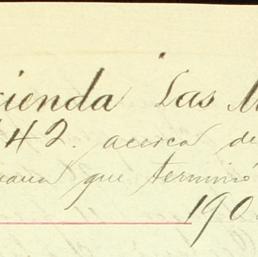 cienda "Las M
42. acerca de
mana que terminó
190